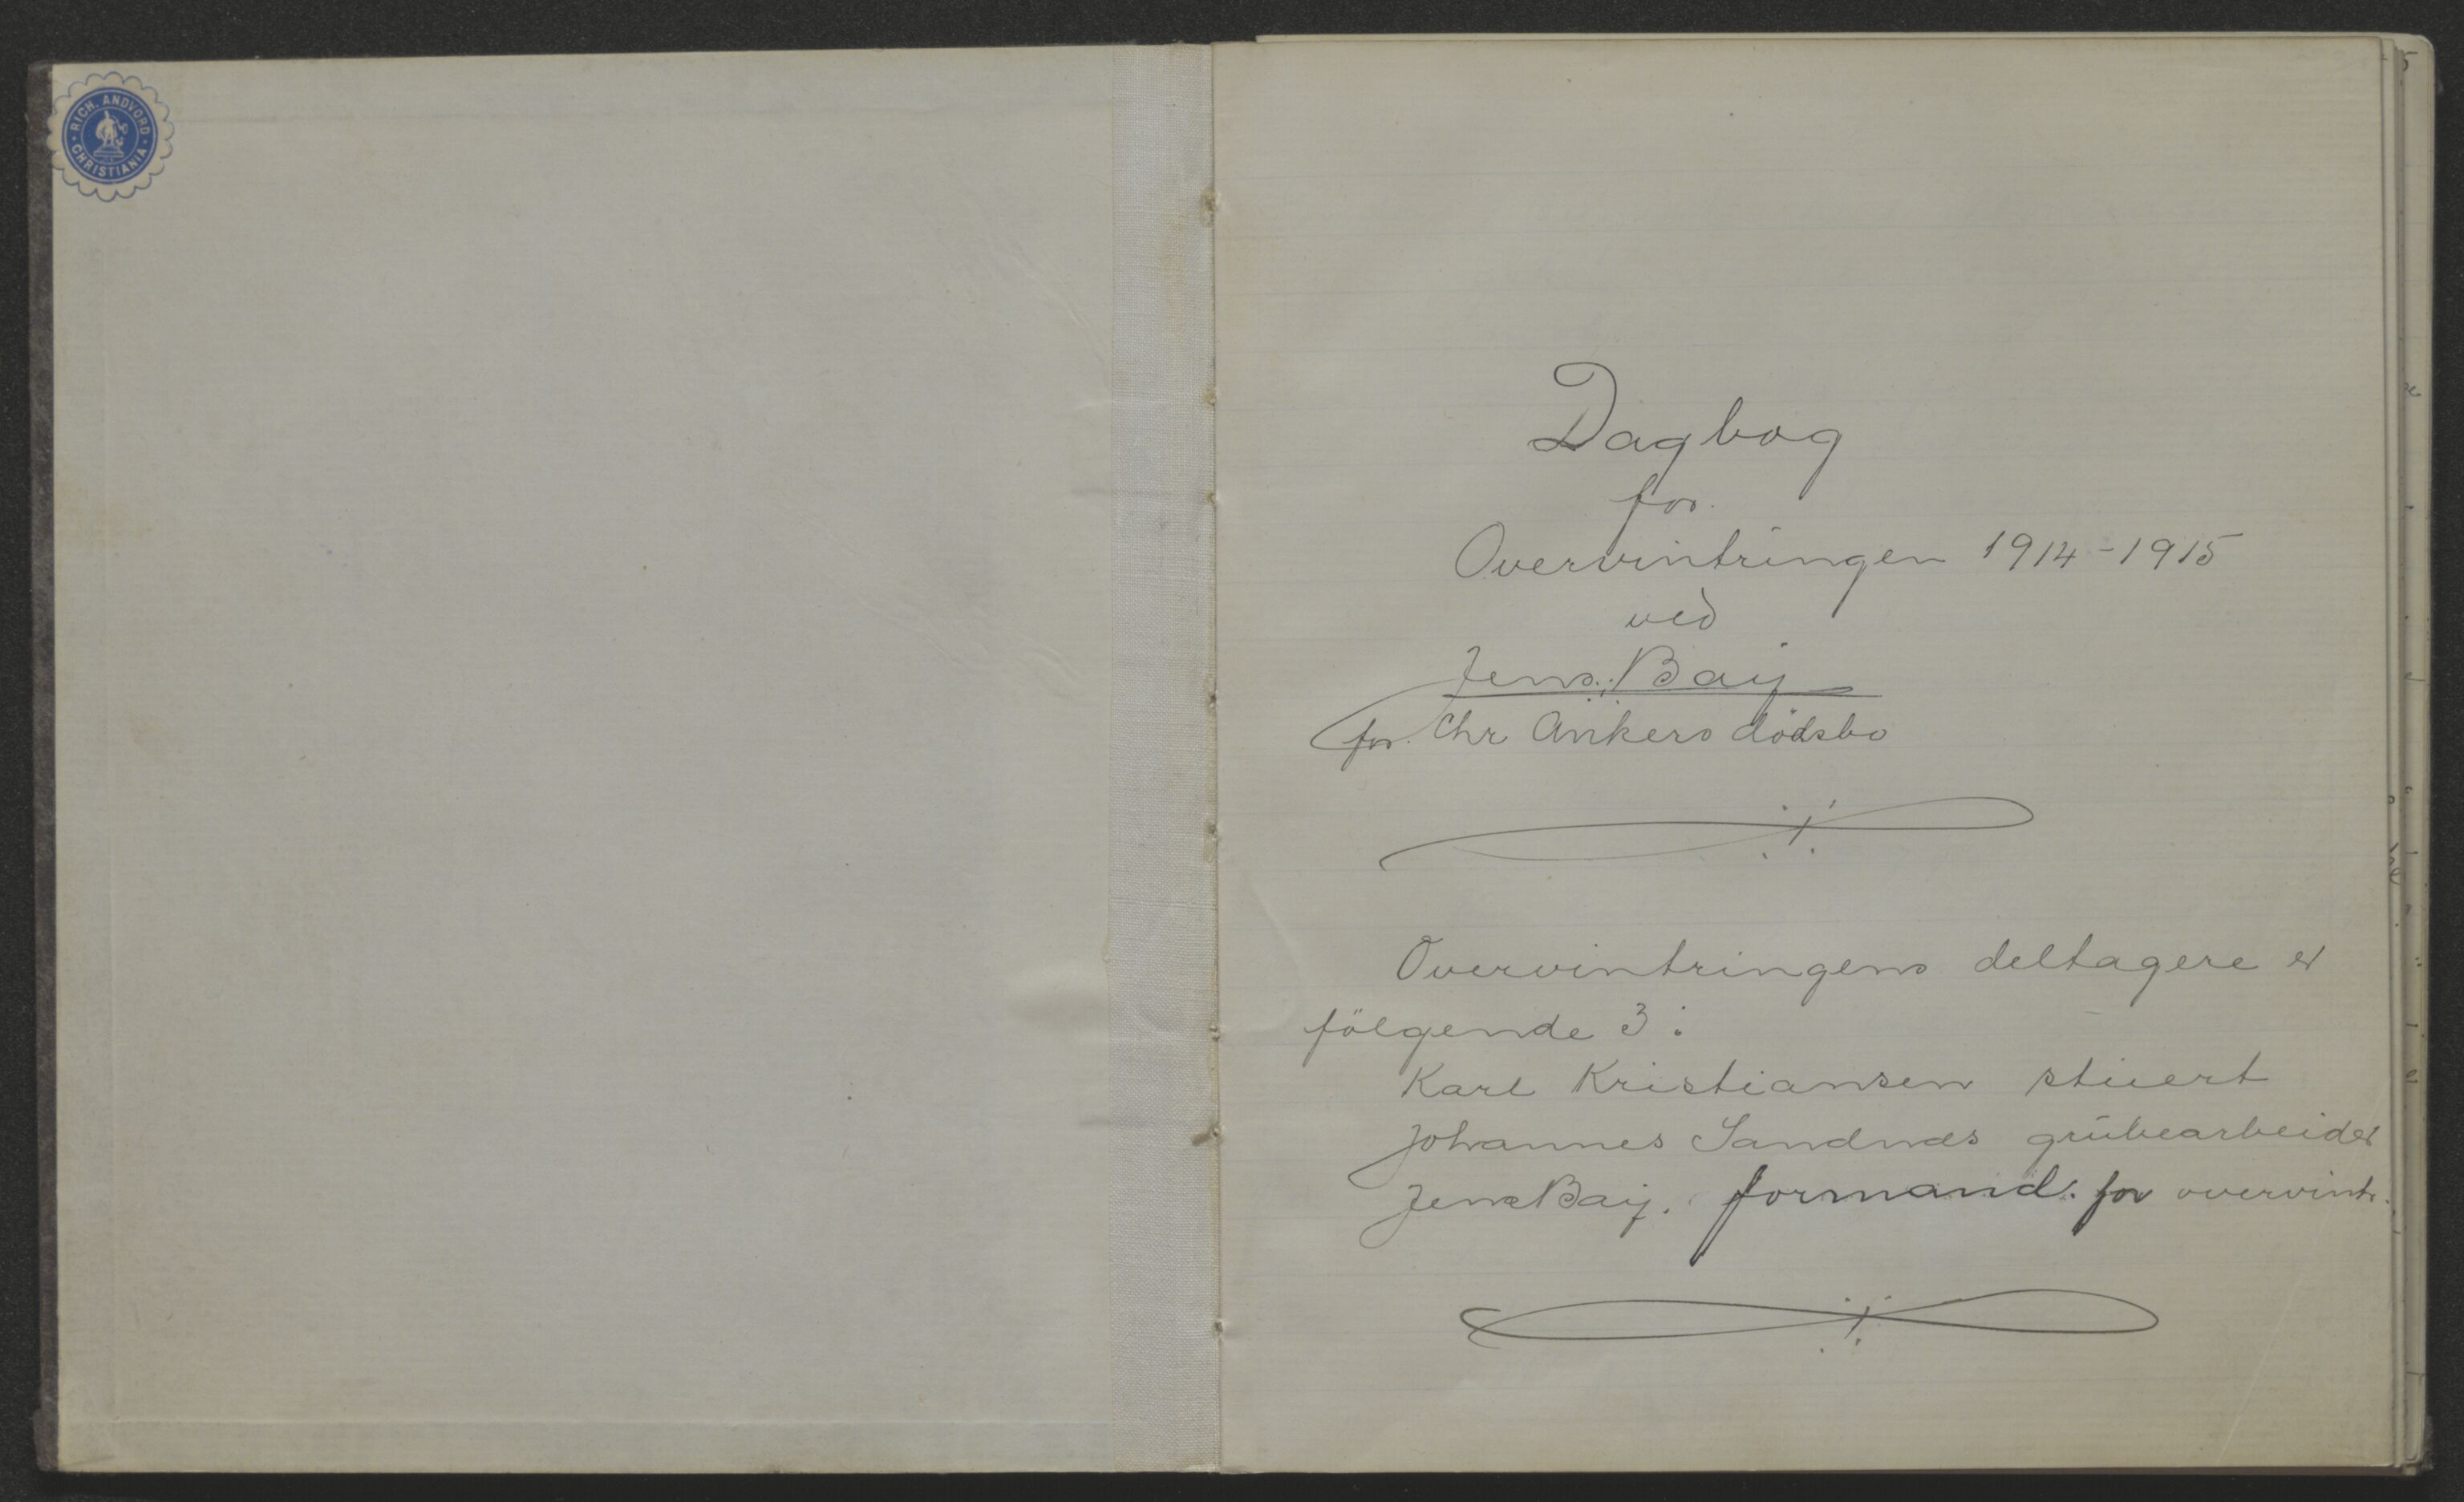 RICH. ANDVORD
CHRISTIANIA
Dagbog
for
Overvintringen 1914-1915
ved
Jens Baij
for Chr Ankers dödsbo
Overvintringens deltagere er
fölgende 3:
Karl Kristiansen stuert
Johannes Sandnæs grubearbeider
Jens Baij. formand. for overvintr.